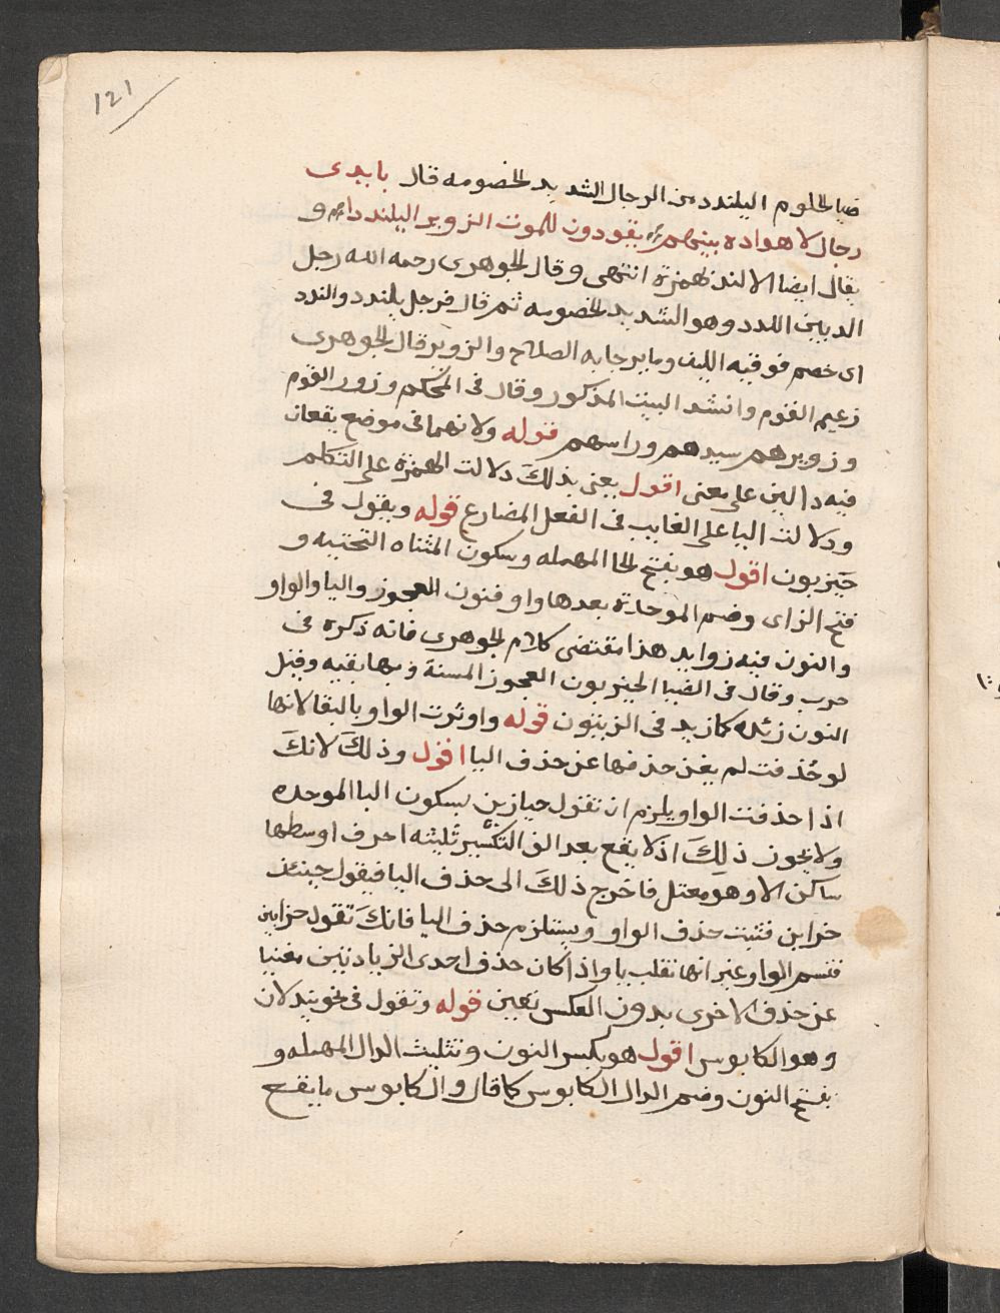 121
ضيا الحلوم اليلندد من الرجال الشديد الخصومه قال بايدى
رجال لا هواده بينهم يقودون للموت الزوير اليلنددا و
يقال ايضا الالندد بهمزة انتهى وقال الجوهرى رحمه الله رجل
الد بين اللدد وهو الشديد الخصومه ثم قال فرجل يلندد والندد
اى خصم فوقيه الليف وما يرجا به الصلاح والزوير قال الجوهرى
زعيم القوم وانشد البيت المذكور وقال فى المحكم وزور القوم
وزويرهم سيدهم وراسهم قوله ولانهما فى موضع يقعان
فيه دالين على معنى اقول يعنى بذلك دلالت الهمزة على التكلم
ودلالت اليا على الغايب فى الفعل المضارع قوله ويقول فى
حيزبون اقول هو بفتح الحا المهمله وسكون المثناه التحتيه و
فتح الزاى وضم الموحدة بعدها واو فنون العجوز واليا والواو
والنون فيه زوايد هذا مقتضى كلام الجوهرى فانه ذكره فى
حزب وقال فى الضيا الحيزبون العجوز المسنة وبها بقيه وقيل
النون زئده كما زيد فى الزيتون قوله واوثرت الواو بالبقا لانها
لو حُذفت لم يغن حذفها عن حذف اليا اقول وذلك لانك
اذا حذفت الواو يلزم ان تقول حيازبن بسكون البا الموحده
ولا يجوز ذلك اذ لا يقع بعد الف التكسير ثليثه احرف اوسطها
ساكن الا وهو معتل فاخرج ذلك الى حذف اليا فيقول حينئذ
حزابن فتثبت حذف الواو ويستلزم حذف اليا فانك تقول حزابين
فتسم الواو غير انها تقلب يا واذا كان حذف احدى الزيادتين مغنيا
عن حذف الاخرى بدون العكس تعين قوله وتقول فى نحو نيدلان
وهو الكابوس اقول هو بكسر النون وتثليث الدال المهمله و
بفتح النون وضم الدال الكابوس كما قال والكابوس ما يقع